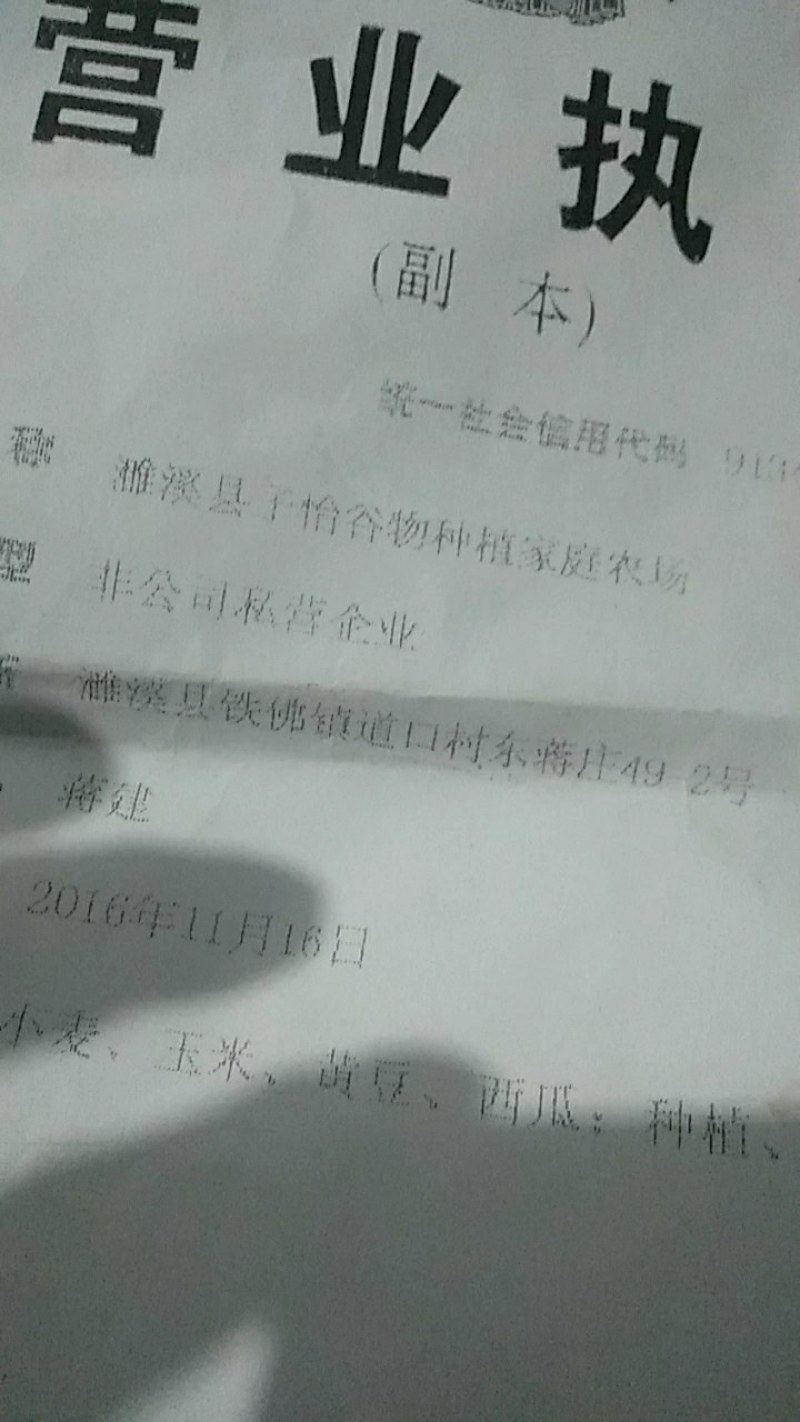 营业执
(副 本)
统一社会信用代码 913
称 濉溪县子怡谷物种植家庭农场
型 非公司私营企业
所 濉溪县铁佛镇道口村东蒋庄49-2号
蒋建
2016年11月16日
小麦、玉米、黄豆、西瓜；种植、